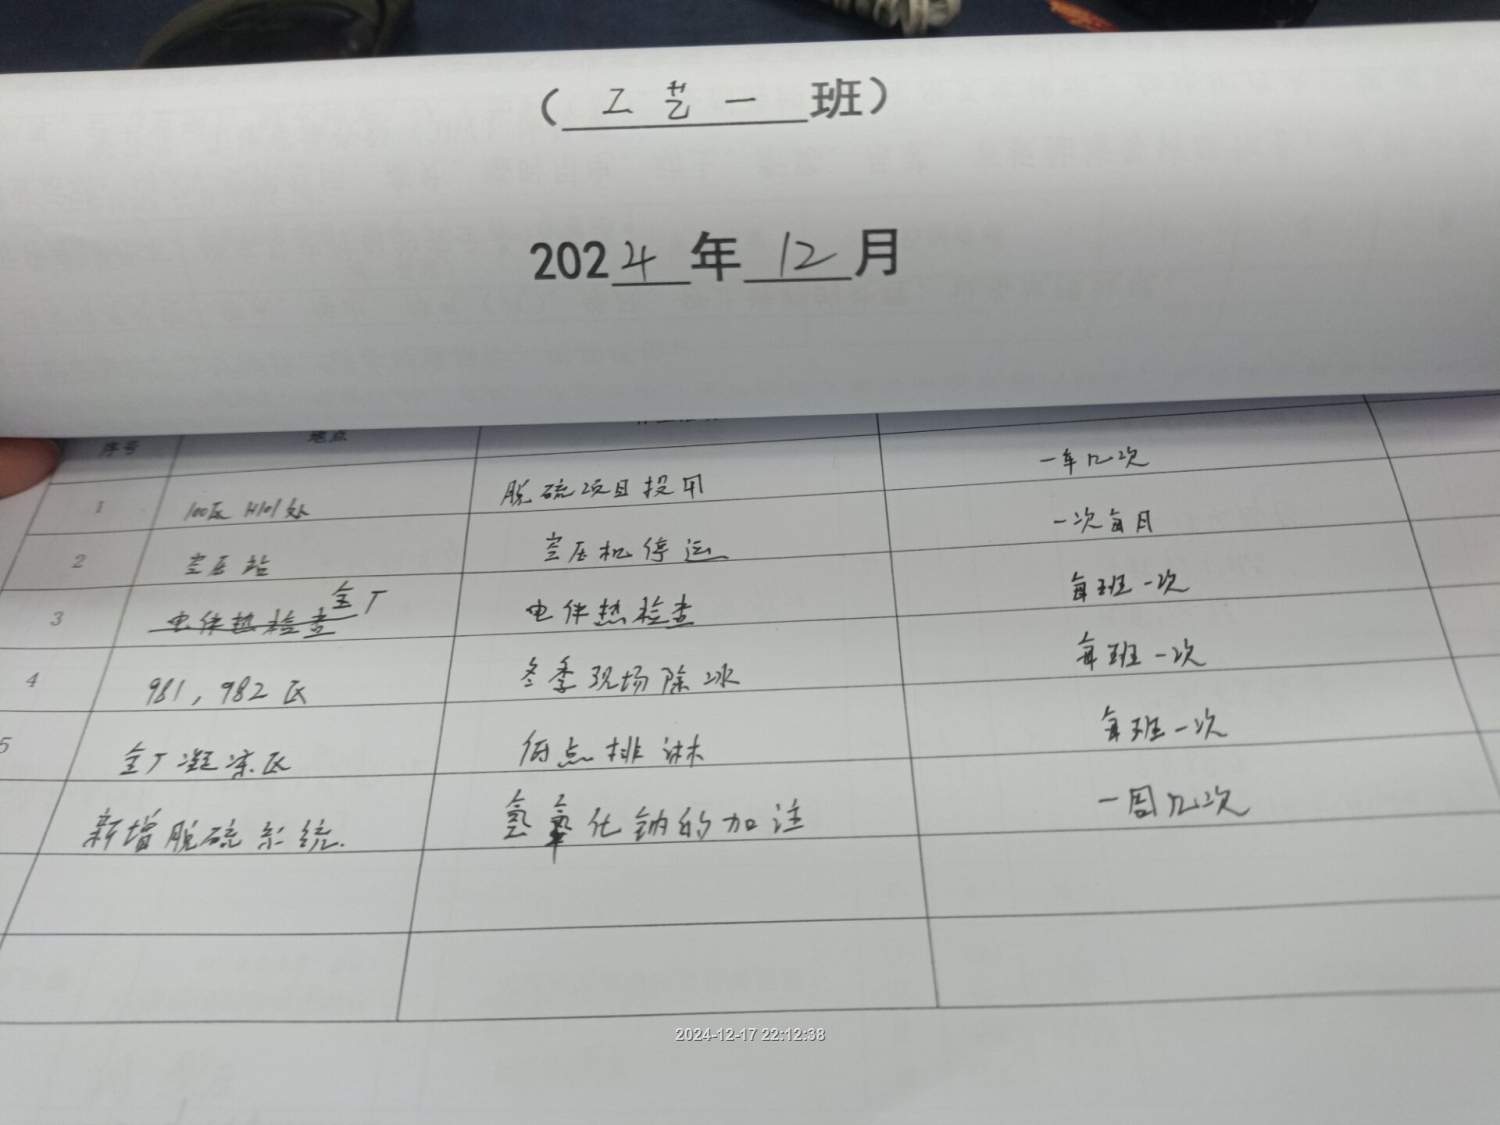 （工艺一班）
2024年12月
序号 地点
1 100区 H101处 脱硫项目投用 一年几次
2 空压站 空压机停运 一次每月
3 电伴热检查 全厂 电伴热检查 每班一次
4 981，982区 冬季现场除冰 每班一次
5 全厂凝凉区 低点排淋 每班一次
新增脱硫系统. 氢氧化钠的加注 一周几次
2024-12-17 22:12:38